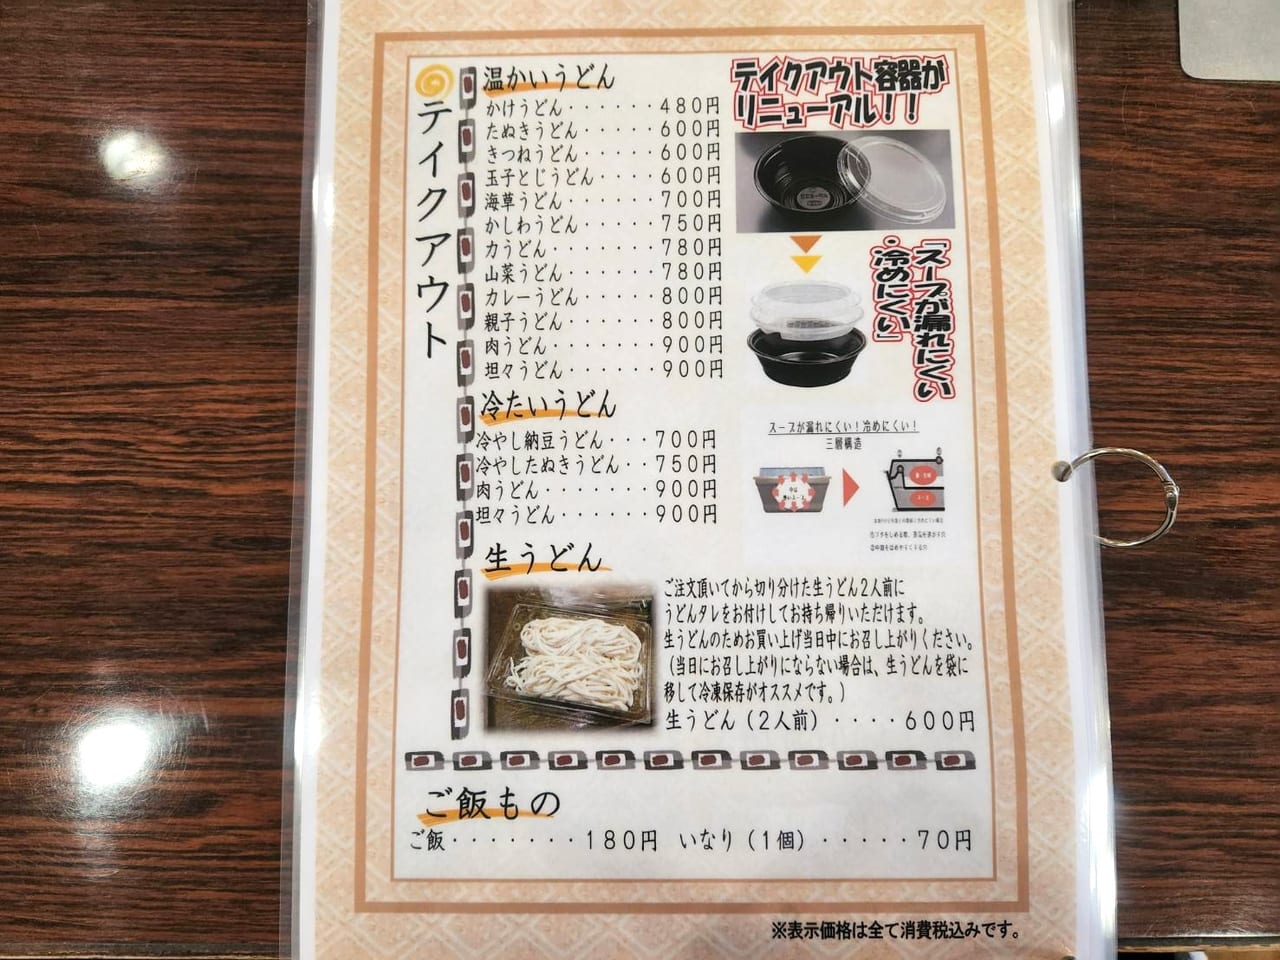 テイクアウト
温かいうどん
かけうどん・・・・・・480円
たぬきうどん・・・・・600円
きつねうどん・・・・・600円
玉子とじうどん・・・・600円
海草うどん・・・・・・700円
かしわうどん・・・・・750円
力うどん・・・・・・・780円
山菜うどん・・・・・・780円
カレーうどん・・・・・800円
親子うどん・・・・・・800円
肉うどん・・・・・・・900円
坦々うどん・・・・・・900円
冷たいうどん
冷やし納豆うどん・・・700円
冷やしたぬきうどん・・750円
肉うどん・・・・・・・900円
坦々うどん・・・・・・900円
テイクアウト容器が
リニューアル!!
「スープが漏れにくい
・冷めにくい」
スープが漏れにくい!冷めにくい!
三層構造
生うどん
ご注文頂いてから切り分けた生うどん2人前に
うどんタレをお付けしてお持ち帰りいただけます。
生うどんのためお買い上げ当日中にお召し上がりください。
(当日にお召し上がりにならない場合は、生うどんを袋に
移して冷凍保存がオススメです。)
生うどん(2人前)・・・・600円
ご飯もの
ご飯・・・・・・・180円 いなり(1個)・・・・・70円
※表示価格は全て消費税込みです。